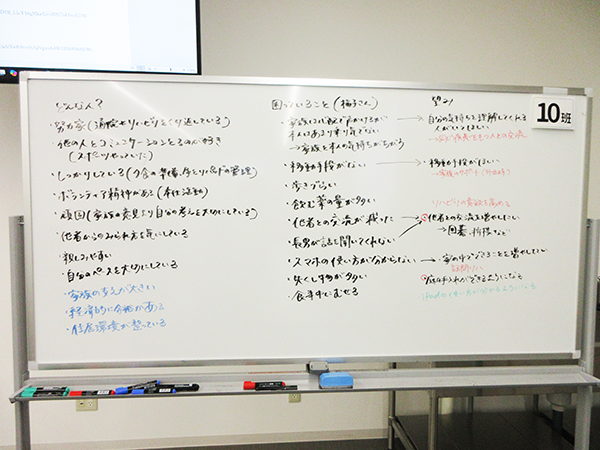 どんな人?
・努力家(通院やリハビリをくり返している)
・他の人とコミュニケーションとるのが好き
(スポーツやっていた)
・しっかりしている(の管理)
・ボランティア精神がある
・頑固(家族の意見より自分の考えを大切にしている)
・他者からのみられ方を気にしている
・親しみやすい
・自分のペースを大切にしている
・家族の支えが大きい
・経済的に余裕がある
・住居環境が整っている
困っていること(梅子さん)
・家族は
本人はあまり乗り気でない
→家族と本人の気持ちがちがう
・移動手段がない
・歩きづらい
・飲む薬の量が多い
・他者との交流が減った
・長男が話を聞いてくれない
・スマホの使い方が分からない
・失くし物が多い
・食事中にむせる
望み
自分の気持ちを理解してくれる
人がいてほしい
→同じ疾患をもつ人との交流
・移動手段がほしい
→家族のサポート
リハビリの意欲を高める
他者との交流を増やしたい
→囲碁、将棋など
・家の中でできることを増やしたい
庭の手入れができるようになる
10班